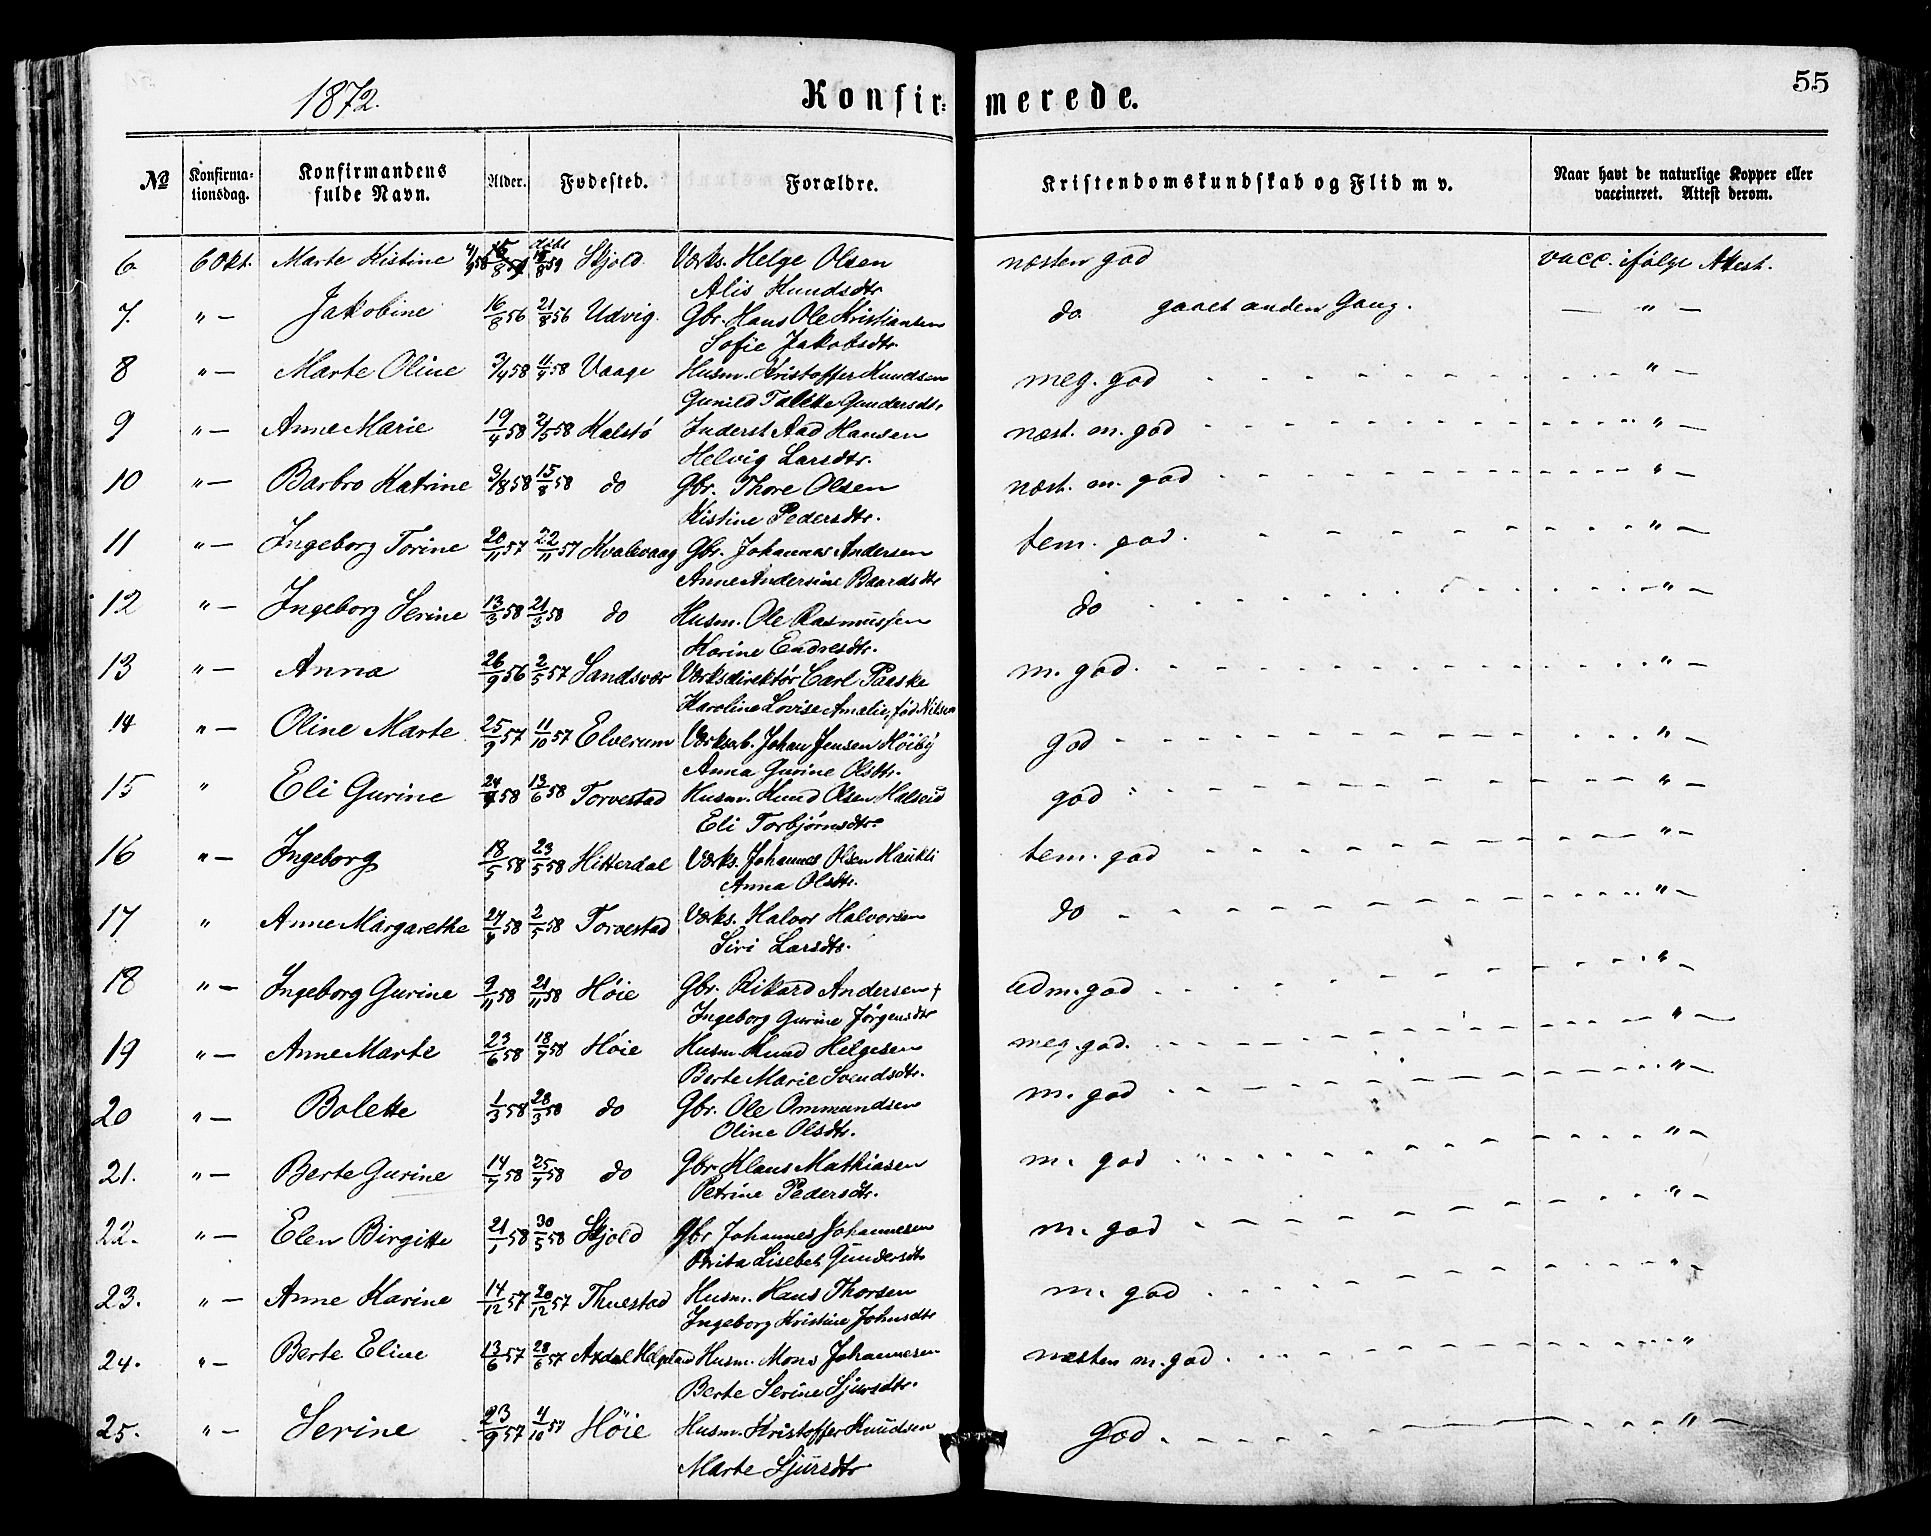 1872. Konfir- merede. 55
No Konfirma-tionsdag. Konfirmandens fulde Navn. Alder. Fødested. Forældre. Kristendomskundskab og Flid m v. Naar havt de naturlige Kopper eller vaccineret. Attest derom.
6 6 Okt. Marte Kistine 4/9 58 døbt 59 Skjold Værks. Helge Olsen næsten god vacc. ifølge Attest.
Alis Knudsdtr
7. " — Jakobine 16/8 56 21/8 56 Udvig. Gbr. Hans Ole Kristiansen do gaaet anden Gang. — " —
Sofie Jakobsdtr
8 " — Marte Oline 3/4 58 11/4 58 Vaage Husm. Kristoffer Knudsen meg. god " —
Gunild Gundersdtr
9 " — Anne Marie 19/4 58 2/5 58 Kalstø Inderst Aad Hansen næst. m. god " —
Helvig Larsdtr.
10 " — Barbro Katrine 3/8 58 15/8 58 do Gbr. Thore Olsen næst. m. god " —
Kistine Pedersdtr.
11 " — Ingeborg Torine 20/11 57 22/11 57 Kvalevaag Gbr. Johannes Andersen tem. god. " —
Anne Andersine Baardsdtr
12 " — Ingeborg Serine 13/3 58 21/3 58 do Husm. Ole Rasmussen do " —
Karine Endresdtr.
13 " — Anna 26/9 56 2/5 57 Sandsvær Værksdirektør Carl Paaske m. god. " —
Karoline Lovise Amalie, fød Nilsen
14 " — Oline Marte 25/9 57 11/10 57 Elverum Værksab. Johan Jensen Høiby god " —
Anna Gurine Olsdtr.
15 " Eli Gurine 24/4 58 13/6 58 Torvestad Husm. Knud Olsen god " —
Eli Torbjørnsdtr.
16 " — Ingeborg 18/5 58 23/5 58 Hitterdal Værks. Johannes Olsen Haukli tem. god " —
Anna Olsdtr.
17 " Anne Margarethe 24/4 58 2/5 58 Torvestad Værks. Halvor Halvorsen do " —
Siri Larsdtr.
18 " — Ingeborg Gurine 9/11 58 21/11 58 Høie Gbr. Rikard Andersen † udm. god " —
Ingeborg Gurine Jørgensdtr
19 " — Anne Marte 23/6 58 18/7 58 Høie Husm. Knud Helgesen meg. god. " —
Berte Marie Svendsdtr.
20 " — Bolette 1/3 58 28/3 58 do Gbr. Ole Ommundsen m. god " —
Oline Olsdtr.
21. " — Berte Gurine 14/7 58 25/7 58 do Gbr Klaus Mathiasen m. god " —
Petrine Pedersdtr.
22. " — Elen Birgitte 21/1 58 30/5 58 Skjold Gbr Johannes Johannesen m. god " —
Brita Lisebet Gundersdtr
23. " — Anne Karine 14/12 57 20/12 57 Thuestad Husm. Hans Thorsen m. god " —
Ingeborg Kristine Johnsdtr
24. " — Berte Eline 13/6 57 28/6 57 Husm. Mons Johannesen næsten m. god "
Berte Serine Sjursdtr.
25. " — Serine 23/9 57 4/10 57 Høie Husm. Kristoffer Knudsen god " —
Marte Sjursdtr